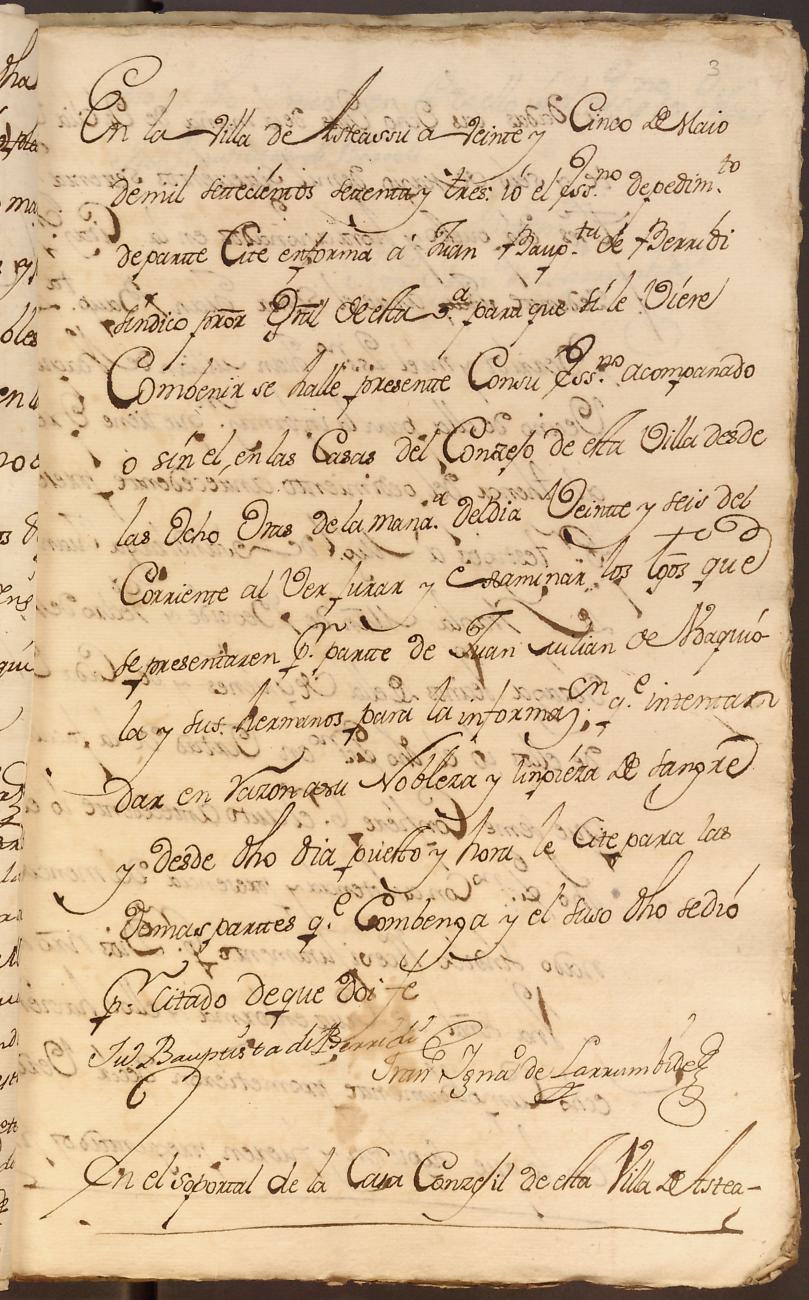 3
En la Villa de Asteassu a Veinte y Cinco de Maio
de mil setecientos setenta y tres: ió el Ess.no depedim.to
de partte Cite enforma á Juan Baup.ta de Berridi
sindico pror Gral de esta V.a para que si le Viere
Combenir se halle presentte Consu Ess.no acompañado
o sin el, en las Casas del Conzejo de esta Villa desde
las Ocho Oras de la mana.a del dia Veintte y seis del
Corriente al Ver Jurar y examinar los tgos que
se presentaren p.r partte de Juan Julian de
la y sus hermanos para la informaz.on q.e intentan
dar en razon asu Nobleza y limpieza de sangre
y desde dho dia puesto y hora le Cite para las
Demas parttes q.e Combenga y el suso dho se dió
p.r Citado de que Doi fe
Juº Bauptista de Berridi Franº Ignaº de Larrumbide
En el soportal de la Casa Conzejil de esta Villa de Astea-